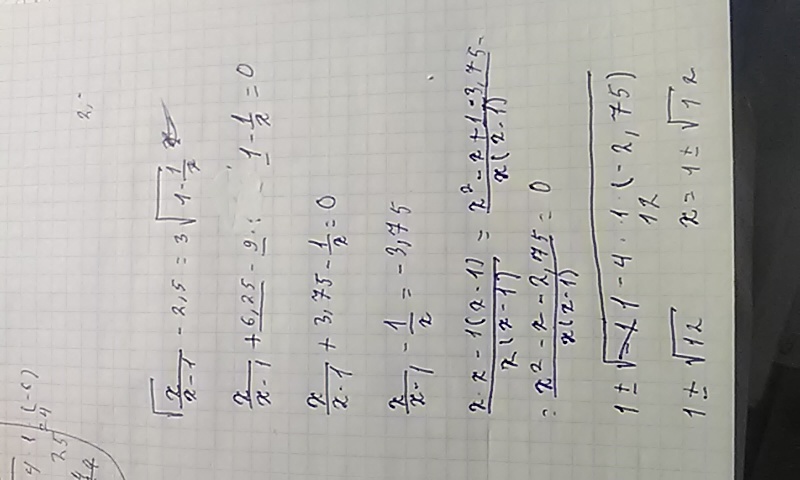 2,-
√(x/(x-1)) - 2,5 = 3√(1 - 1/x)
x/(x-1) + 6,25 - 9 · 1 - 1/x = 0
x/(x-1) + 3,75 - 1/x = 0
x/(x-1) - 1/x = -3,75
(x·x - 1(x-1))/(x(x-1)) = (x² - x + 1 - 3,75)/(x(x-1)) =
= (x² - x - 2,75)/(x(x-1)) = 0
1 ± √(1 - 4 · 1 · (-2,75))
12
1 ± √12 x = 1 ± √12
4 · 1 (-6)
24
25